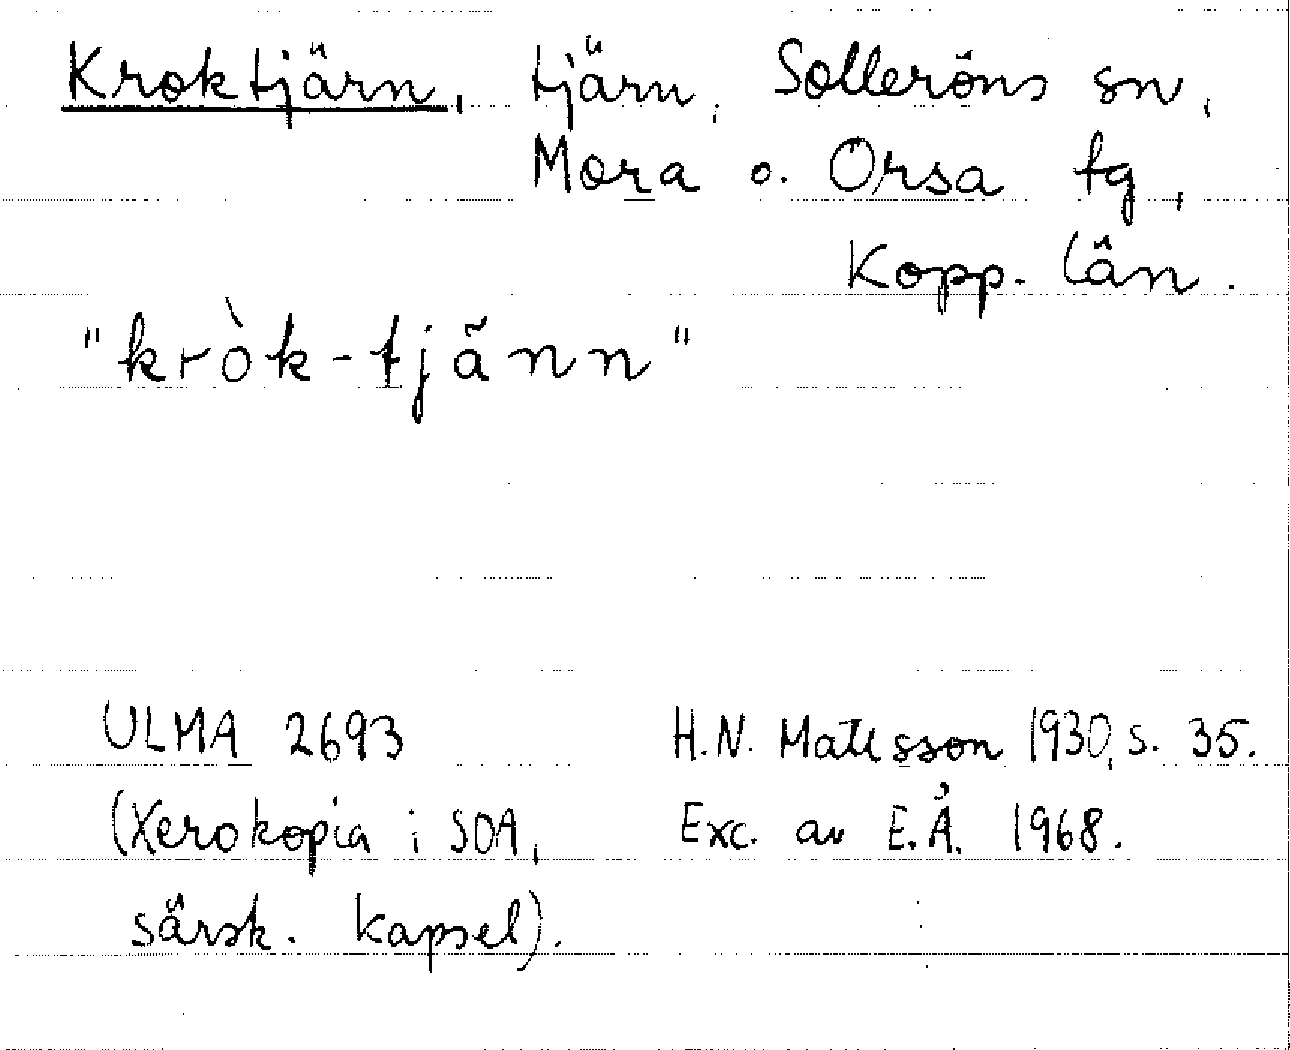 Kroktjärn, tjärn, Solleröns sn,
Mora o. Orsa tg,
Kopp. län.
"kròk-tjänn"
ULMA 2693 H.N. Matsson 1930, s. 35.
(Xerokopia i SOA, Exc. av E.Å. 1968.
särsk. kapsel).